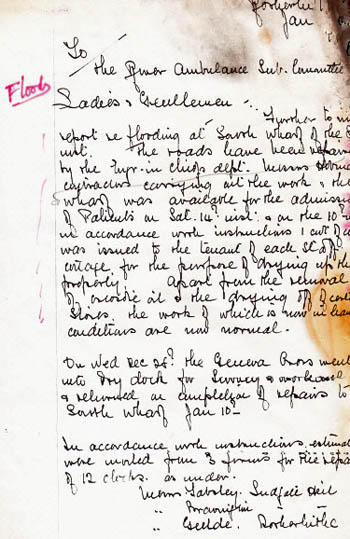 Rotherhithe
Jan
To
the River Ambulance Sub. Committee
Floods
Ladies & Gentlemen :.
Further to my
report re flooding at South Wharf of the
inst. The roads have been repair
by the Engr-in chiefs dept. Messrs
contractors carrying out the work & the
wharf was available for the admiss
of Patients on Sat. 14th inst. & on the 10th
in accordance with instructions 1 cwt of
was issued to the tenant of each
cottage for the purpose of drying up the
property. Apart from the removal
of oil & the drying off of certa
Stores, the work of which is now in han
conditions are now normal.
On Wed Dec 28th the Geneva Cross went
into Dry dock for Survey & overhaul
& returned on completion of repairs to
South Wharf Jan 10th
In accordance with instructions, estimat
were invited from 3 firms for the repa
of 12 clocks. as under.
Messrs Ludgate Hill
" 
" Rotherhithe